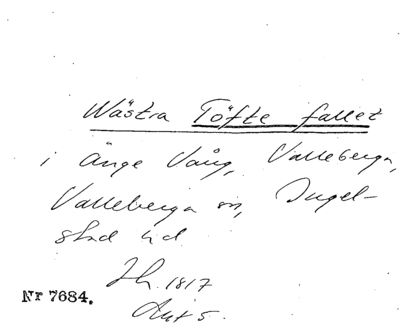 Wästra Töfte fallet
i Änge Vång, Valleberga,
Valleberga sn, Ingel-
stad hd
Sh. 1817
Akt 5.
Nr 7684.